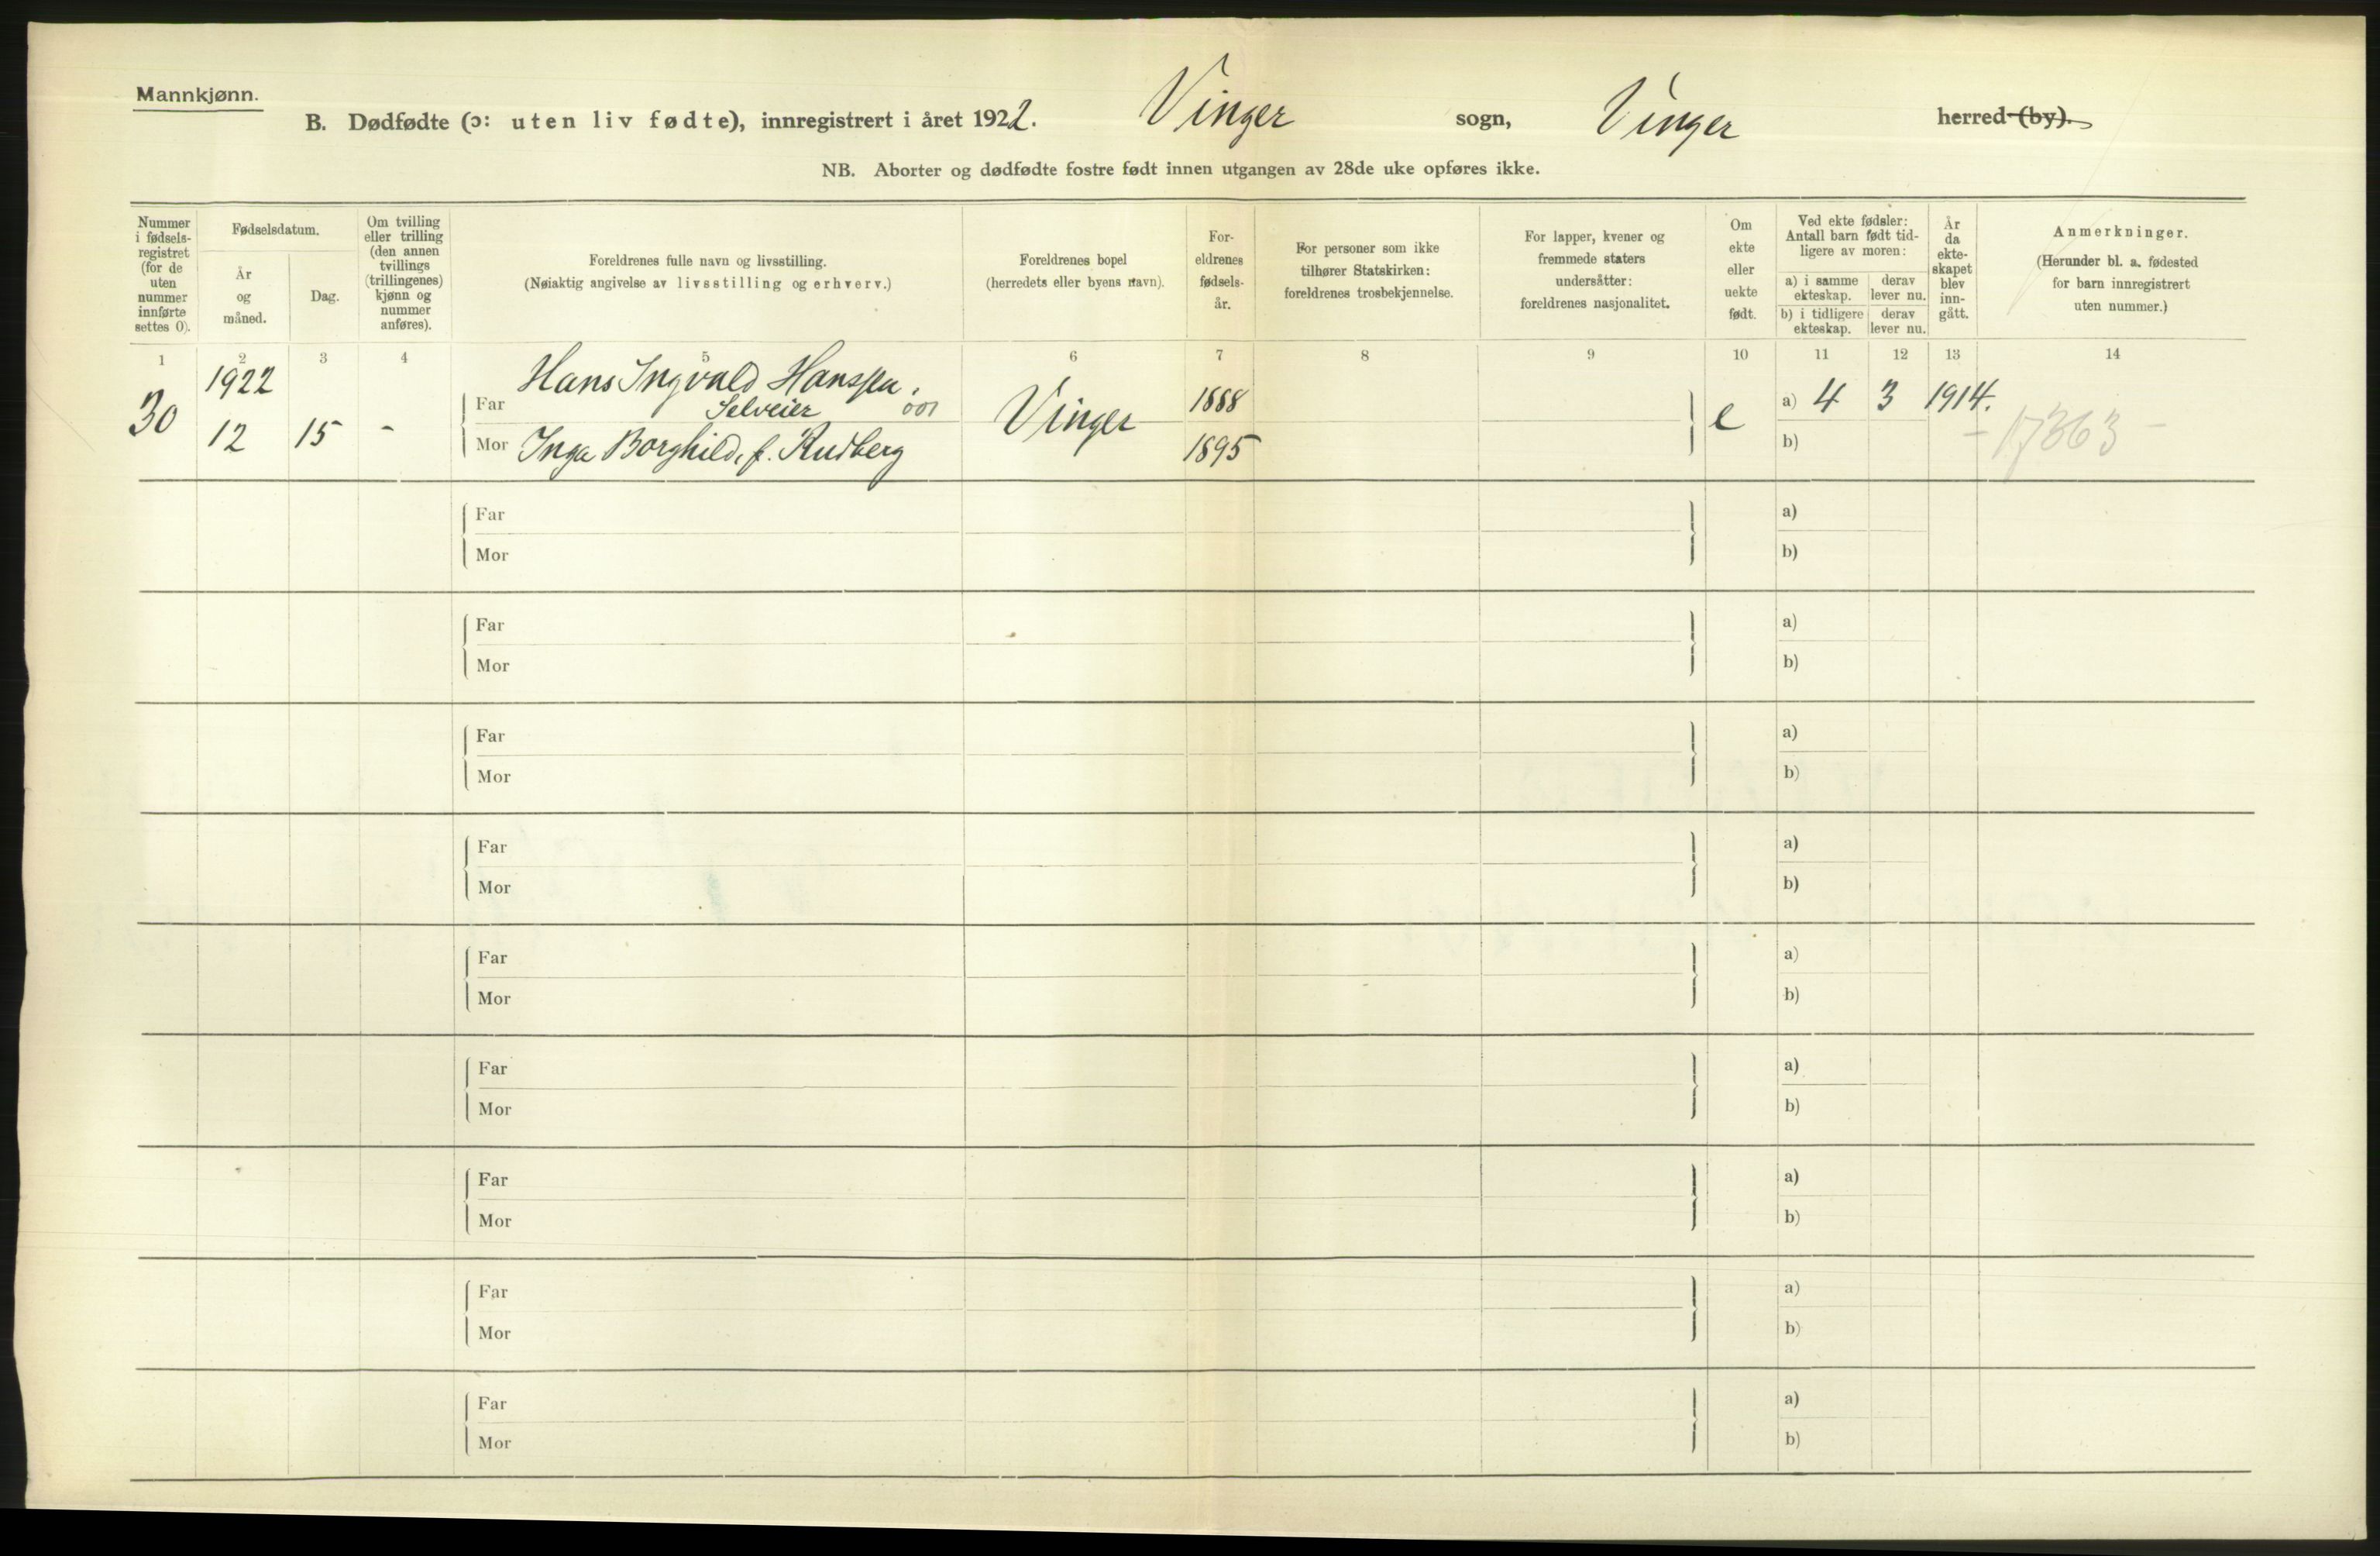 Mannkjønn.
B. Dødfødte (ɔ: uten liv fødte), innregistrert i året 1922. Vinger sogn, Vinger herred (by).
NB. Aborter og dødfødte fostre født innen utgangen av 28de uke opføres ikke.
Nummer i fødsels-registret (for de uten nummer innførte settes 0).
Fødselsdatum.
År og måned.
Dag.
Om tvilling eller trilling (den annen tvillings (trillingenes) kjønn og nummer anføres).
Foreldrenes fulle navn og livsstilling.
(Nøiaktig angivelse av livsstilling og erhverv.)
Foreldrenes bopel
(herredets eller byens navn).
For-eldrenes fødsels-år.
For personer som ikke tilhører Statskirken: foreldrenes trosbekjennelse.
For lapper, kvener og fremmede staters undersåtter: foreldrenes nasjonalitet.
Om ekte eller uekte født.
Ved ekte fødsler: Antall barn født tid-ligere av moren:
a) i samme ekteskap.
derav lever nu.
b) i tidligere ekteskap.
derav lever nu.
År da ekte-skapet blev inn-gått.
Anmerkninger.
(Herunder bl. a. fødested for barn innregistrert uten nummer.)
1 2 3 4 5 6 7 8 9 10 11 12 13 14
30 1922 12 15 -
Far Hans Ingvald Hanssen.
Selveier 001
Mor Inga Borghild, f. Rudberg
Vinger
1888
1895
e
a) 4 3 1914.
b)
- 17363 -
Far a)
Mor b)
Far a)
Mor b)
Far a)
Mor b)
Far a)
Mor b)
Far a)
Mor b)
Far a)
Mor b)
Far a)
Mor b)
Far a)
Mor b)
Far a)
Mor b)